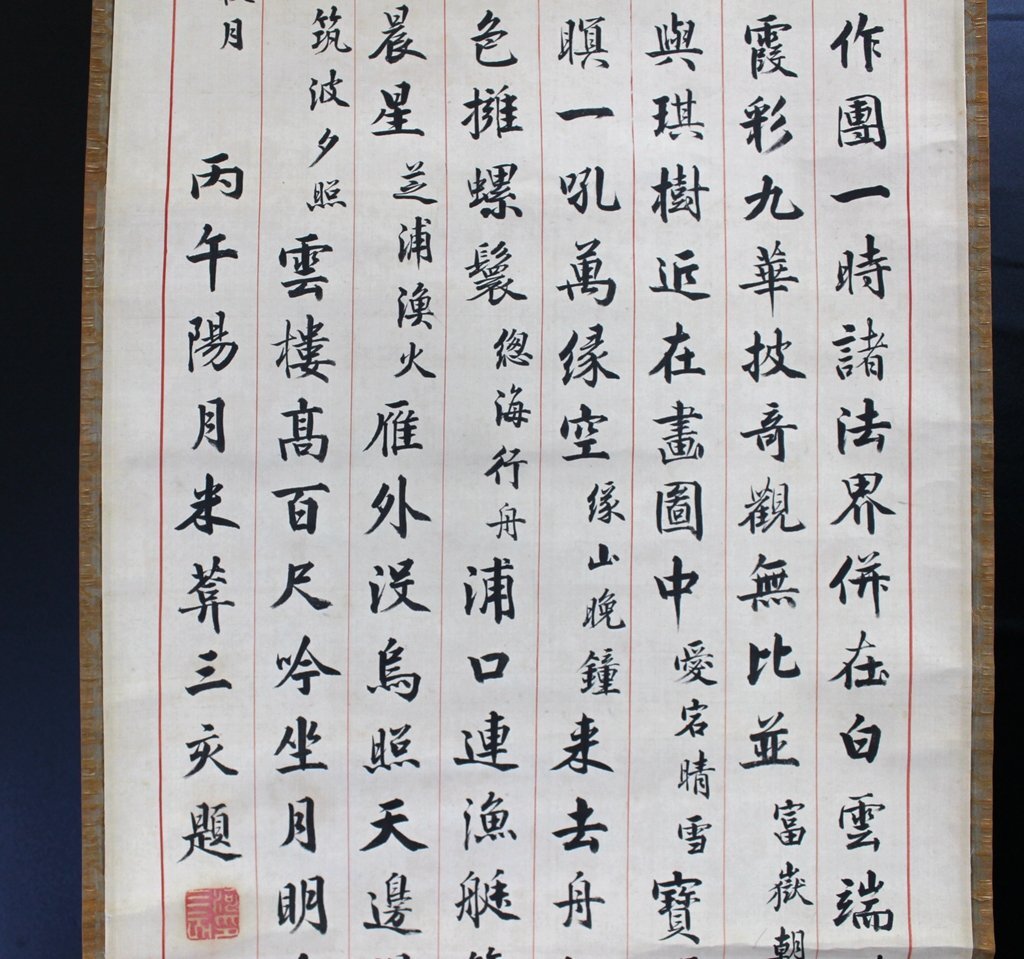 作團一時諸法界併在白雲端
霞彩九華披奇觀無比並富嶽朝
與琪樹近在畫圖中愛宕晴雪寶
瞑一吼萬緣空緣山晚鐘来去舟
色擁螺鬟總海行舟浦口連漁艇
晨星芝浦漁火雁外没烏照天邊
筑波夕照雲樓髙百尺吟坐月明
月
丙午陽月米葊三亥題